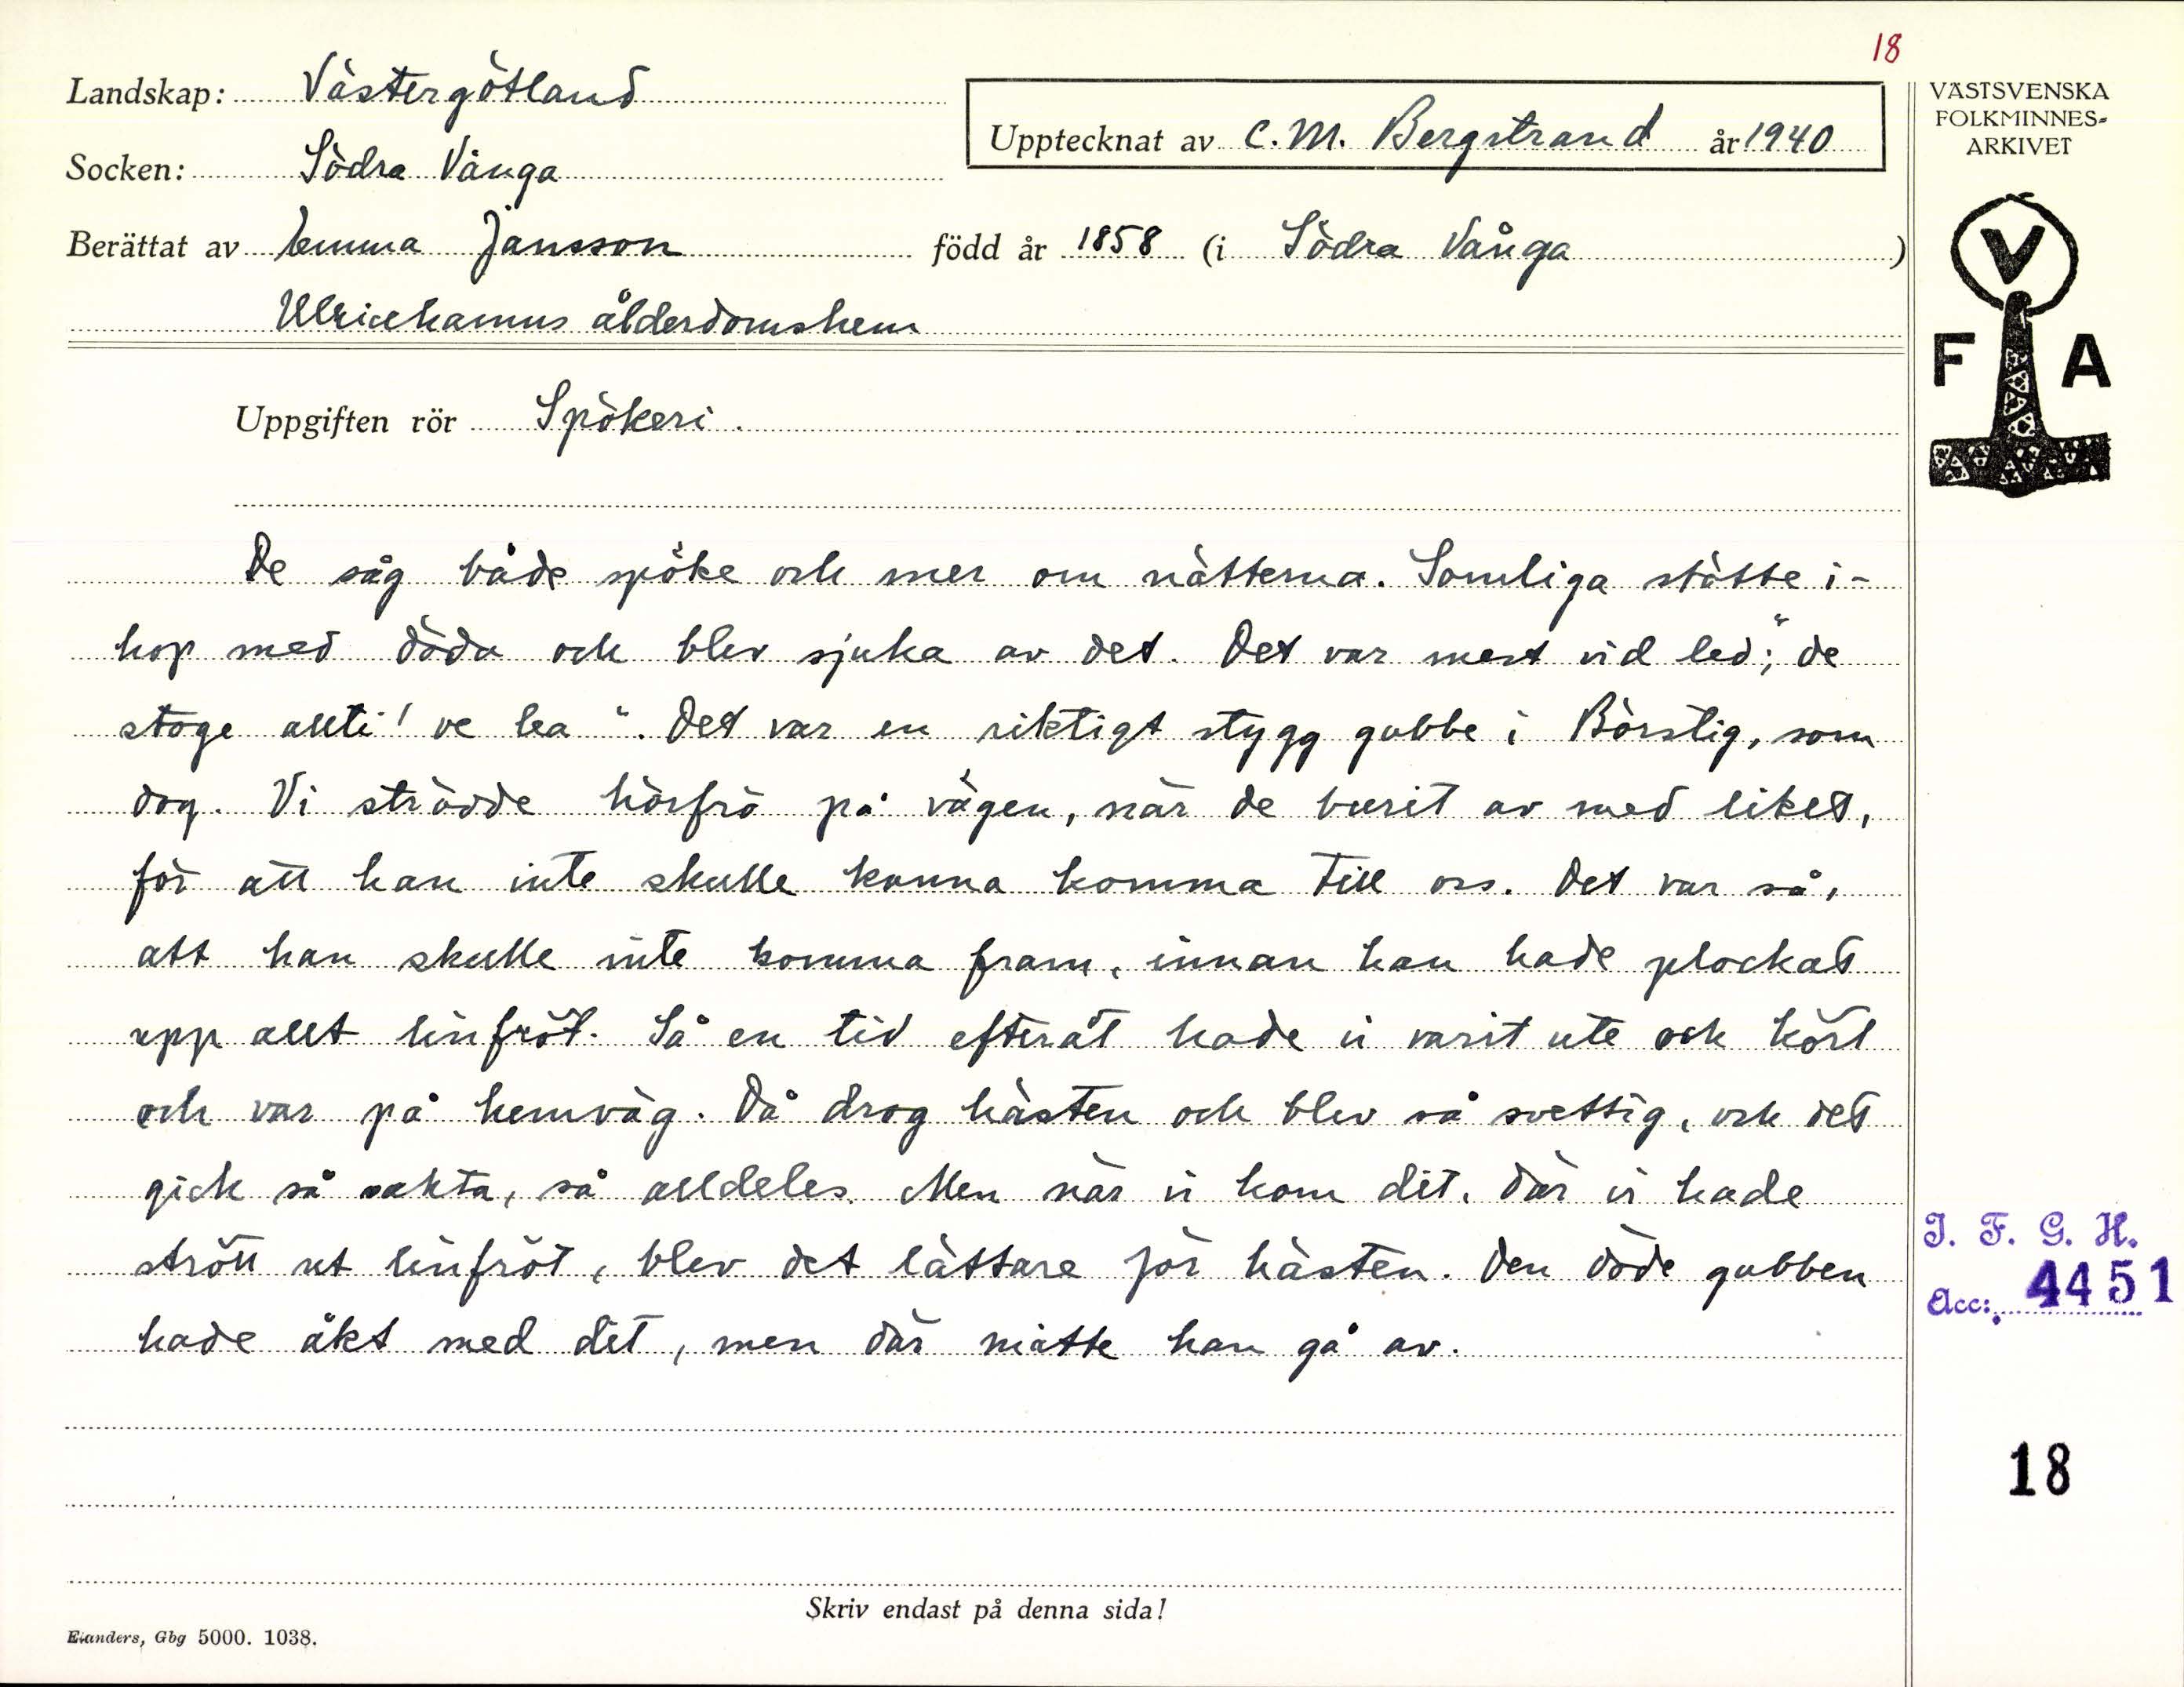 18
Landskap: Västergötland
Upptecknat av C. M. Bergstrand år 1940
VÄSTSVENSKA
FOLKMINNES-
ARKIVET
Socken: Södra Vånga
Berättat av Emma Jansson född år 1858 (i Södra Vånga )
Ulricehamns ålderdomshem
V
F A
Uppgiften rör Spökeri.
De såg både spöke och mer om nätterna. Somliga stötte i-
hop med döda och blev sjuka av det. Det var mest vid led; "de
stoge allti' ve lea". Det var en riktigt stygg gubbe i Börstig, som
dog. Vi strödde hörfrö på vägen, när de burit av med liket,
för att han inte skulle kunna komma till oss. Det var så,
att han skulle inte komma fram, innan han hade plockat
upp allt linfröt. Så en tid efteråt hade vi varit ute och kört
och var på hemväg. Då drog hästen och blev så svettig, och det
gick så sakta, så alldeles. Men när vi kom dit, där vi hade
strött ut linfröt, blev det lättare för hästen. Den döde gubben
hade åkt med dit, men där måtte han gå av.
I. F. G. H.
Acc: 4451
18
Skriv endast på denna sida!
Elanders, Gbg 5000. 1038.